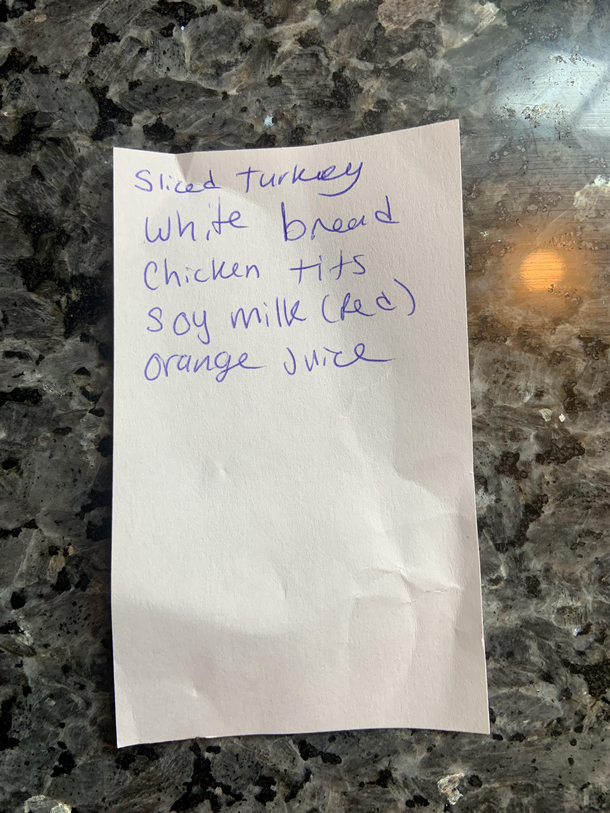 Sliced turkey
White bread
Chicken tits
Soy milk (Red)
Orange Juice